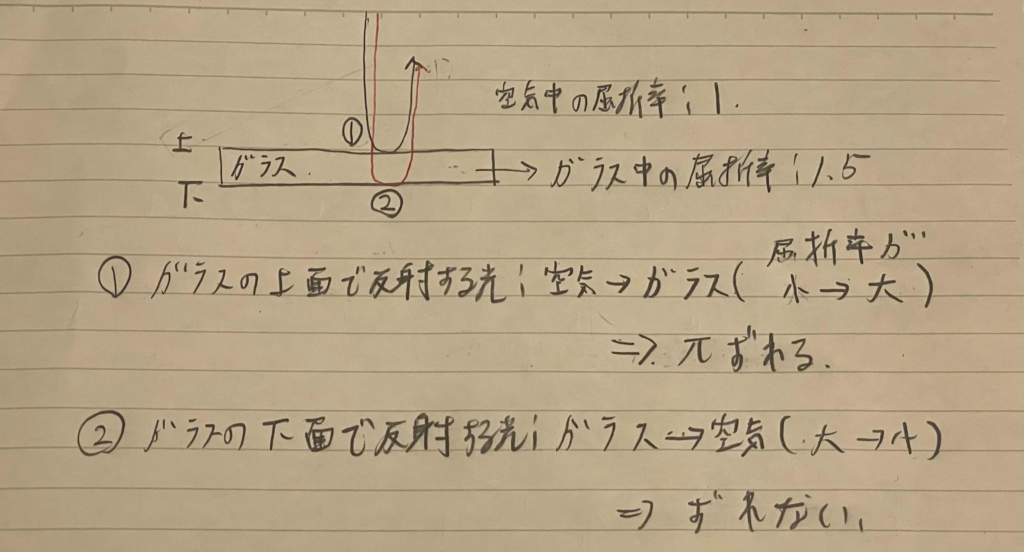 空気中の屈折率：1.
①
上
ガラス.
→ ガラス中の屈折率：1.5
下
②
① ガラスの上面で反射する光；空気→ガラス(屈折率が 小→大)
⇒ πずれる.
② ガラスの下面で反射する光；ガラス→空気(大→小)
⇒ ずれない.